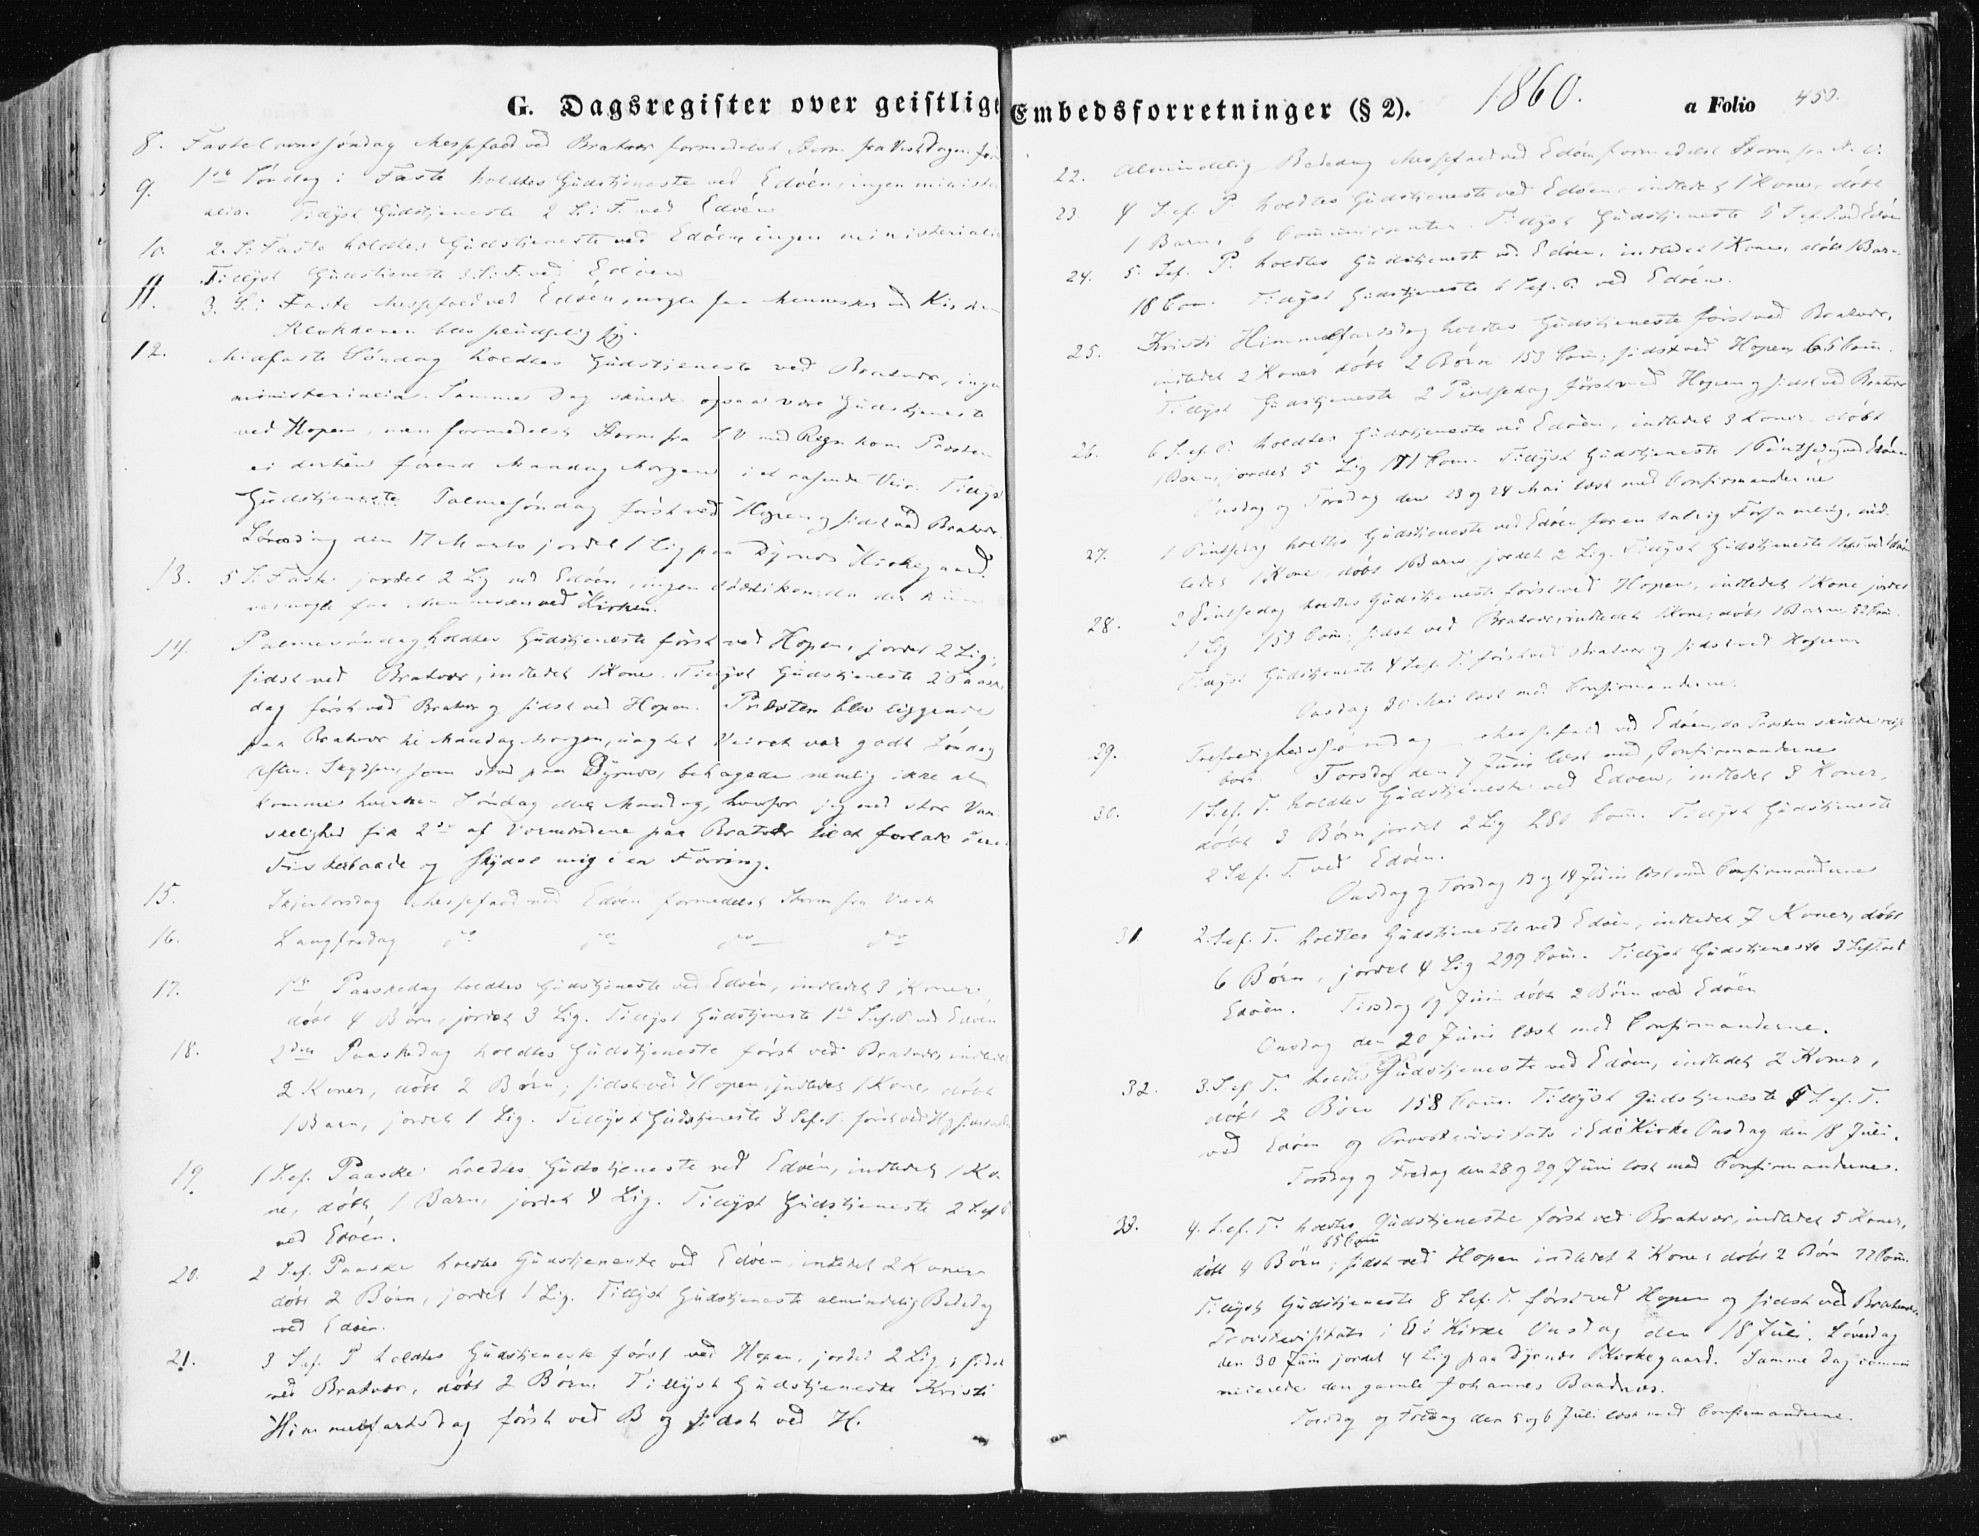 G. Dagsregister over geistlige Embedsforretninger (§ 2). 1860. a Folio 450.
8. Fastelavnssøndag Messefald ved Bratvær formedelst Storm fra Vest Dagen før
9. 1ste Søndag i Faste holdtes Gudstjeneste ved Edøen, ingen ministe-
rialia. Tillyst Gudstjeneste 2 S. i F. ved Edøen
10. 2. S. i Faste holdtes Gudstjeneste ved Edøen, ingen ministerialia
Tillyst Gudstjeneste 3 S. i F. ved Edøen
11. 3. S. i Faste Messefald ved Edøen, nogle faa Mennesker ved Kirken
Klokkeren blev pludselig syg.
12. Midfaste Søndag holdtes Gudstjeneste ved Bratvær, ingen
ministerialia. Samme Dag skulde ogsaa være Gudstjeneste
ved Hopen, men formedelst Storm fra S.V. med Regn kom Præsten
ei derhen førend Mandag Morgen i et rasende Veir. Tillyst
Gudstjeneste Palmesøndag først ved Hopen og sidst ved Bratvær.
Løverdag den 17 Marts jordet 1 Lig paa Dyrnes Kirkegaard.
13. 5 S. i Faste jordet 2 Lig ved Edøen, ingen da der kun
var nogle faa Mennesker ved Kirken.
14. Palmesøndag holdtes Gudstjeneste først ved Hopen, jordet 2 Lig;
sidst ved Bratvær, indledet 1 Kone. Tillyst Gudstjeneste 2 Paaske-
dag først ved Bratvær og sidst ved Hopen. Præsten blev liggende
paa Bratvær til Mandag Morgen, uagtet Veiret var godt Søndag
Aften. Skydsen, som stod paa Dyrnes, behagede nemlig ikke at
komme hverken Søndag eller Mandag, hvorfor jeg med stor Van-
skelighed fik 2de af Vormændene paa Bratvær til at forlade deres
Fiskerbaade og skydse mig i en Færing.
15. Skjærtorsdag Messefald ved Edøen formedelst Storm fra Vest
16. Langfredag do do do do
17. 1ste Paaskedag holdtes Gudstjeneste ved Edøen, indledet 3 Koner
døbt 4 Børn, jordet 3 Lig. Tillyst Gudstjeneste 1ste S. ef. P. ved Edøen
18. 2den Paaskedag holdtes Gudstjeneste først ved Bratvær, indledet
2 Koner, døbt 2 Børn; sidst ved Hopen, indledet 1 Kone, døbt
1 Barn, jordet 1 Lig. Tillyst Gudstjeneste 3 S. ef. P. først ved H og sidst ved B
19. 1 S. ef. Paaske holdtes Gudstjeneste ved Edøen, indledet 1 Ko-
ne, døbt 1 Barn, jordet 4 Lig. Tillyst Gudstjeneste 2 S. ef. P.
ved Edøen.
20. 2 S. ef. Paaske holdtes Gudstjeneste ved Edøen, indledet 2 Koner
døbt 2 Børn, jordet 1 Lig. Tillyst Gudstjeneste almindelig Bededag
ved Edøen.
21. 3 S. ef. P. holdtes Gudstjeneste først ved Hopen, jordet 2 Lig; sidst
ved Bratvær, døbt 2 Børn. Tillyst Gudstjeneste Kristi
Himmelfartsdag først ved B og sidst ved H.
22. Almindelig Bededag Messefald ved Edøen formedelst Storm fra
23. 4 S. ef. P. holdtes Gudstjeneste ved Edøen, indledet 1 Kone, døbt
1 Barn, 6 Communicanter. Tillyst Gudstjeneste 5 S. ef. P. ved Edøen
24. 5. S. ef. P. holdtes Gudstjeneste ved Edøen, indledet 1 Kone, døbt 1 Barn
18 Com. Tillyst Gudstjeneste 6 S. ef. P. ved Edøen.
25. Kristi Himmelfartsdag holdtes Gudstjeneste først ved Bratvær,
indledet 2 Koner døbt 2 Børn 153 Com; sidst ved Hopen Com.
Tillyst Gudstjeneste 2 Pintsedag først ved Hopen og sidst ved Bratvær
26. 6 S. ef. P. holdtes Gudstjeneste ved Edøen, indledet 3 Koner, døbt
1 Barn, jordet 5 Lig 171 Com. Tillyst Gudstjeneste 1 Pintsedag ved Edøen
Onsdag og Torsdag den 23 og 24 Mai læst med Confirmanderne
27. 1 Pintsedag holdtes Gudstjeneste ved Edøen for en talrig Forsamling, ind-
ledet 1 Kone, døbt 1 Barn jordet 2 Lig. Tillyst Gudstjeneste ved Edøen
28. 2 Pintsedag holdtes Gudstjeneste først ved Hopen, indledet 1 Kone jordet
1 Lig 153 Com; sidst ved Bratvær, indledet 1 Kone, døbt 1 Barn, 52 Com.
Tillyst Gudstjeneste 4 S. ef. T. først ved Bratvær og sidst ved Hopen
Onsdag 30 Mai læst med Confirmanderne.
29. Trefoldighedssøndag Messefald ved Edøen, da Præsten skulde reise
bort. Torsdag den 7 Juni læst med Confirmanderne
30. 1 S. ef. T. holdtes Gudstjeneste ved Edøen, indledet 3 Koner,
døbt 3 Børn jordet 2 Lig 280 Com. Tillyst Gudstjeneste
2 S. ef. T. ved Edøen.
Onsdag og Torsdag 13 og 14 Juni læst med Confirmanderne
31. 2. S. ef. T. holdtes Gudstjeneste ved Edøen, indledet 7 Koner, døbt
6 Børn, jordet 4 Lig 299 Com. Tillyst Gudstjeneste 3 S. ef. T. ved
Edøen. Tirsdag 19 Juni døbt 2 Børn ved Edøen
Onsdag den 20 Juni læst med Confirmanderne.
32. 3. S. ef. T. holdtes Gudstjeneste ved Edøen, indledet 2 Koner,
døbt 2 Børn 158 Com. Tillyst Gudstjeneste S. ef. T.
ved Edøen og Provstevisitats i Edø Kirke Onsdag den 18 Juli.
Torsdag og Fredag den 28 og 29 Juni læst med Confirmanderne.
33. 4. S. ef. T. holdtes Gudstjeneste først ved Bratvær, indledet 5 Koner,
døbt 4 Børn, 65 Com; sidst ved Hopen indledet 2 Koner døbt 2 Børn 77 Com.
Tillyst Gudstjeneste 8 S. ef. T. først ved Hopen og sidst ved Bratvær.
Provstevisitats i Edø Kirke Onsdag den 18 Juli. Løverdag
den 30 Juni jordet 4 Lig paa Dyrnes Kirkegaard. Samme Dag commu-
nicerede den gamle Johannes Baadnes.
Torsdag og Fredag den 5 og 6 Juli læst med Confirmanderne.